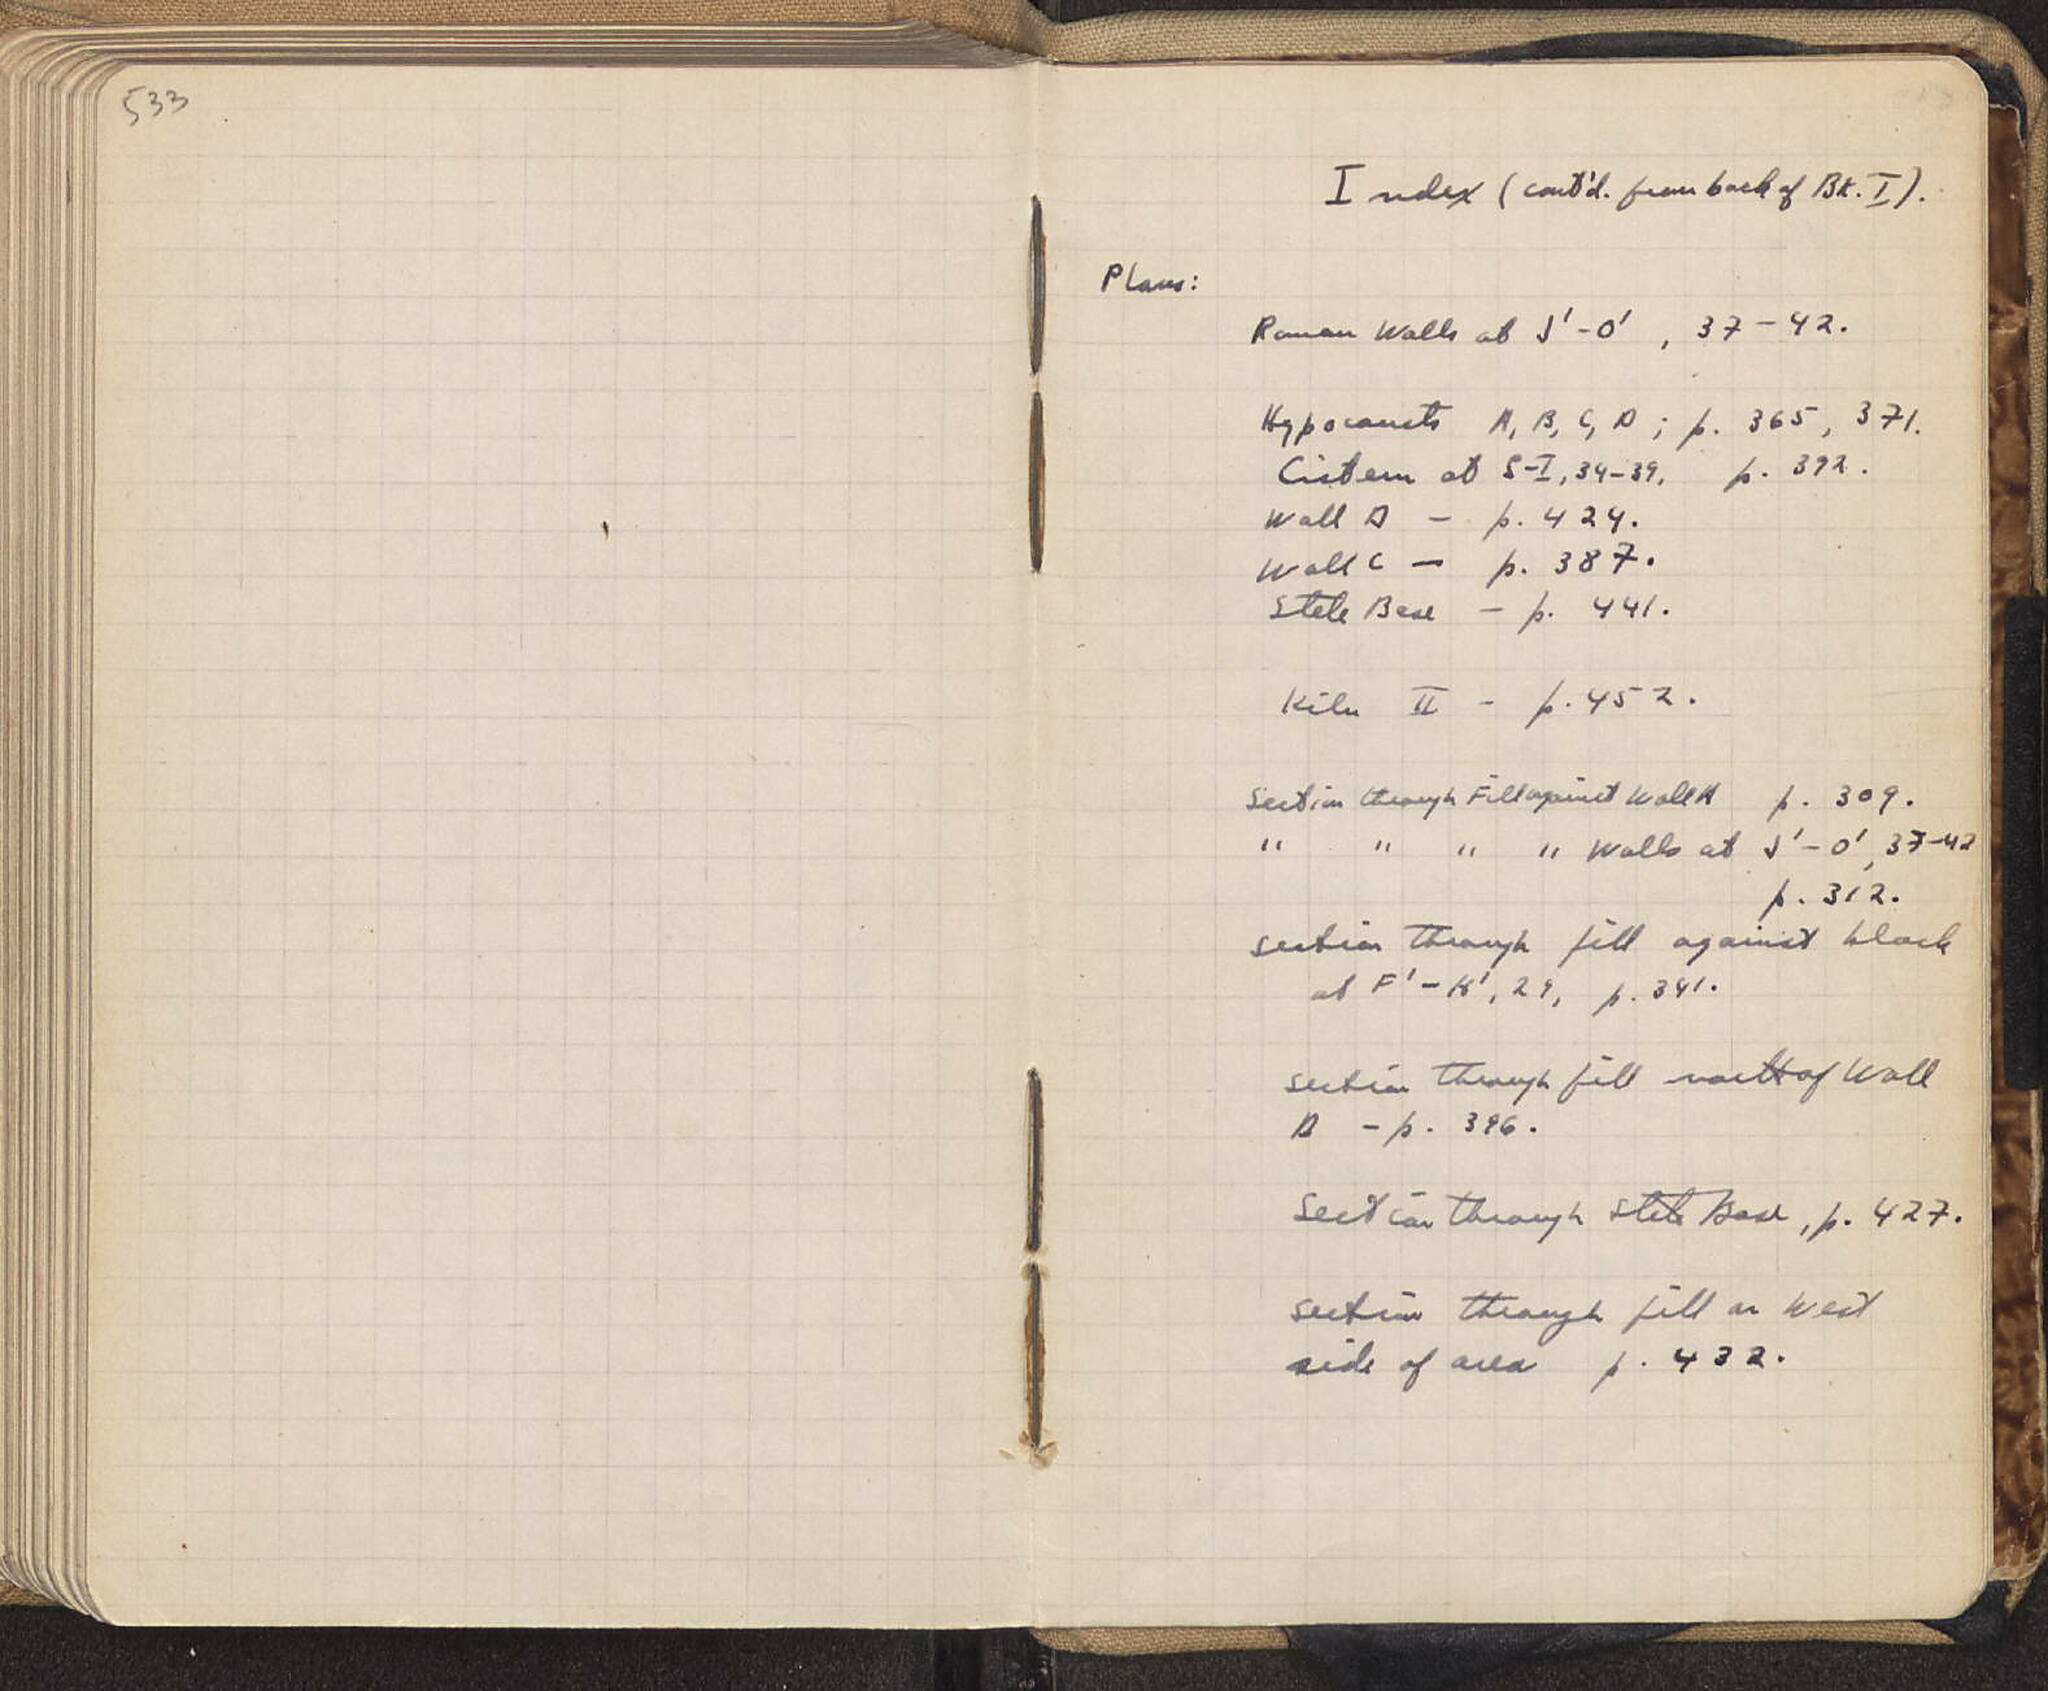 533
Index (cont'd. from back of Bk. I).
Plans:
Roman Walls at J'-O', 37-42.
Hypocausts A, B, C, D; p. 365, 371.
Cistern at S-I, 34-39, p. 392.
Wall D - p. 424.
Wall C - p. 387.
Stele Base - p. 441.
Kiln II - p. 452.
Section through Fill against Wall A p. 309.
" " " " Walls at J'-O', 37-42
p. 312.
section through fill against block
at F'-K', 29, p. 341.
section through fill north of Wall
B - p. 396.
Section through Stele Base, p. 427.
section through fill on West
side of area p. 432.